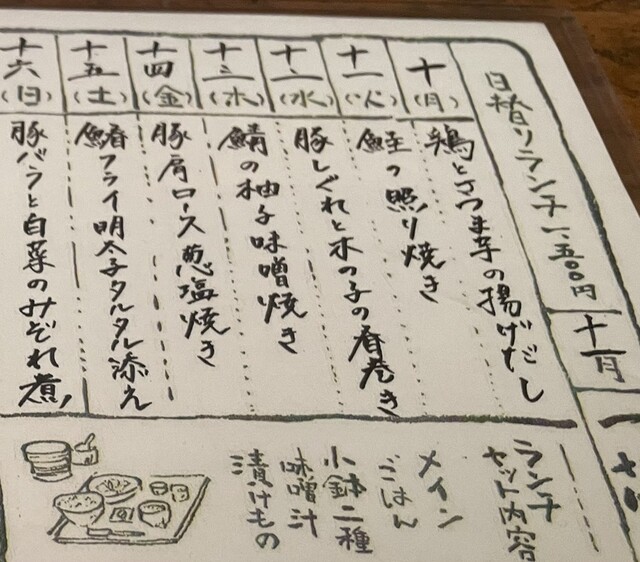 日替りランチ 一、五〇〇円
十一月
十(月)
鶏とさつま芋の揚げだし
十一(火)
鮭の照り焼き
十二(水)
豚しぐれと木の子の春巻き
十三(木)
鯖の柚子味噌焼き
十四(金)
豚肩ロース葱塩焼き
十五(土)
鰆フライ明太子タルタル添え
十六(日)
豚バラと白菜のみぞれ煮
ランチセット内容
メイン
ごはん
小鉢二種
味噌汁
漬けもの